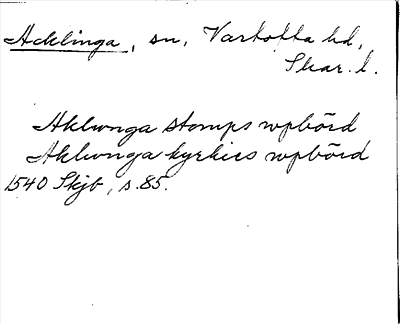 Acklinga, sn, Vartofta hd,
Skar. l.
Aklunga stomps wpbörd
Aklunga kyrkies wpbörd
1540 Skjb, s. 85.